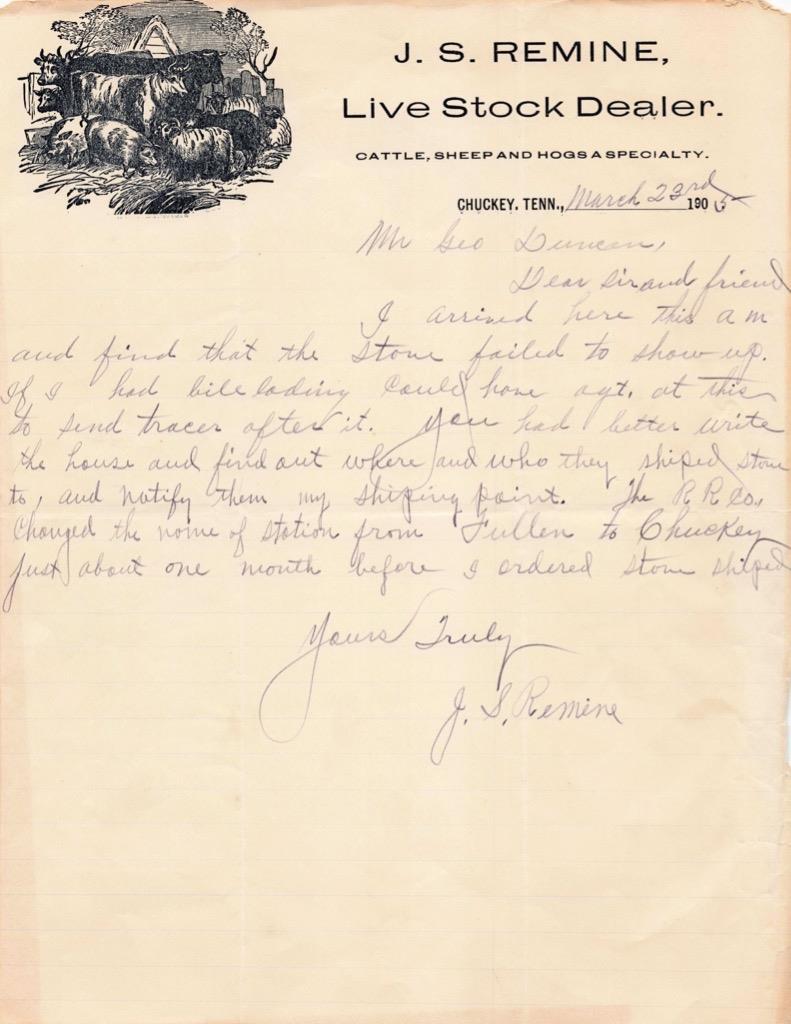 J. S. REMINE,
Live Stock Dealer.
CATTLE, SHEEP AND HOGS A SPECIALTY.
CHUCKEY, TENN., March 23rd 1905
Mr Geo Duncan,
Dear Sir and friend
I arrived here this a m
and find that the stove failed to show up.
If I had bill lading could have agt. at this
to send tracer after it. You had better write
the house and find out where and who they shiped stove
to, and notify them my shiping point. The R R Co,
Changed the name of station from Fullen to Chuckey
just about one month before I ordered stove shiped
Yours Truly
J. S. Remine